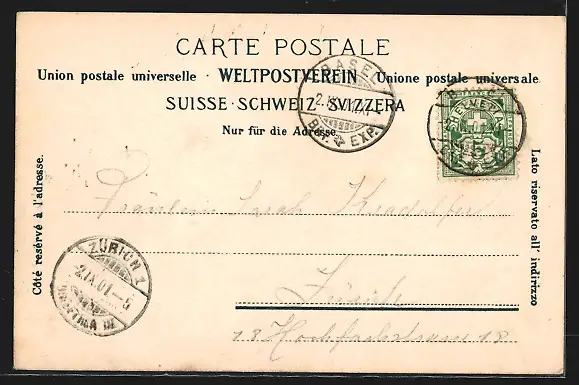 CARTE POSTALE
Union postale universelle · WELTPOSTVEREIN · Unione postale universale
SUISSE · SCHWEIZ · SVIZZERA
Nur für die Adresse
Côté reservé à l'adresse.
Lato riservato all' indirizzo
BASEL
BRF. EXP.
HELVETIA
5
Fräulein
Zürich
18
ZÜRICH 1
-2.IX.01.-5